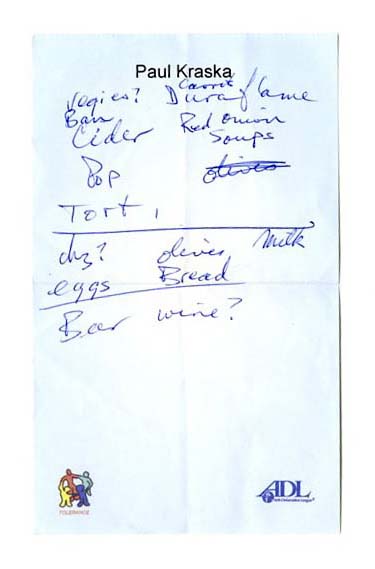 Paul Kraska
Carrots
Duraflame
Cider Red onion
Soups
Pop olives
Tort.
chz? olives Milk
eggs Bread
wine?
TOLERANCE
ADL
Anti-Defamation League